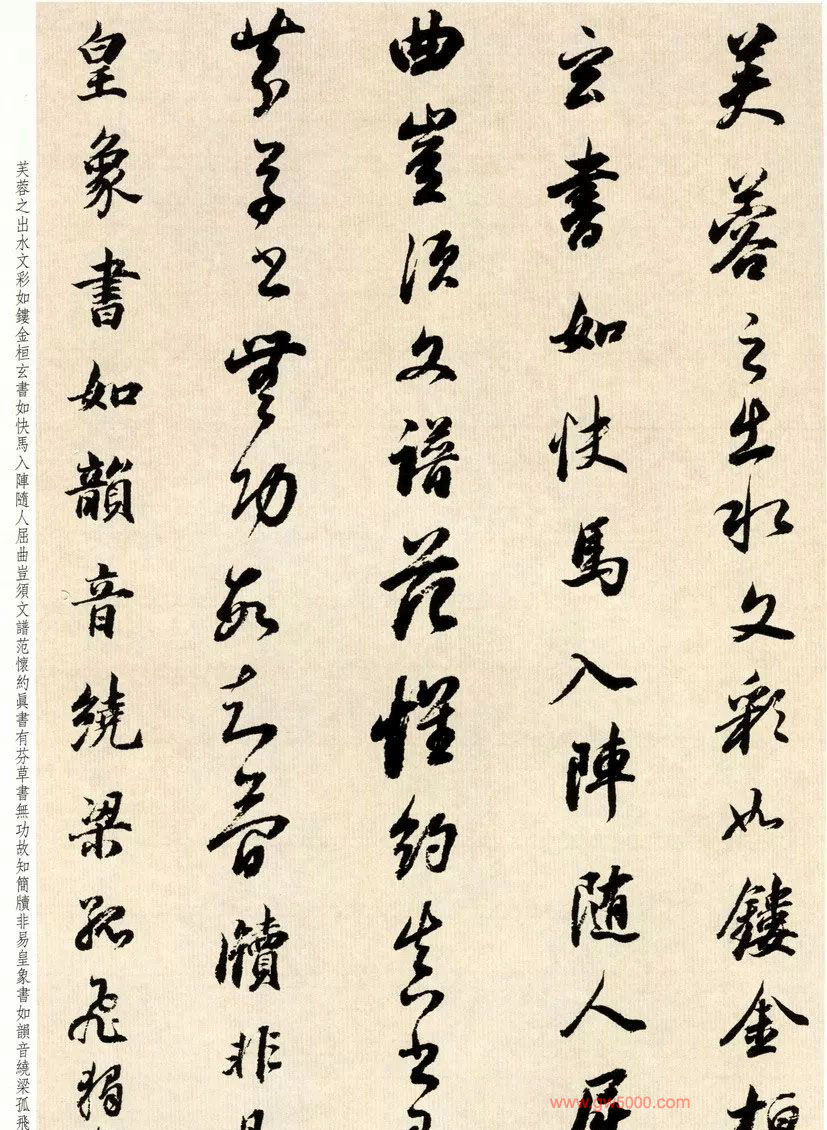 芙蓉之出水文彩如鏤金桓
玄書如快馬入陣随人屈
曲豈須文譜范懷約真書有
芬草書無功故知簡牘非易
皇象書如韻音繞梁孤飛獨
芙蓉之出水文彩如鏤金桓玄書如快馬入陣隨人屈曲豈須文譜范懷約眞書有芬草書無功故知簡牘非易皇象書如韻音繞梁孤飛
www.gw5000.com